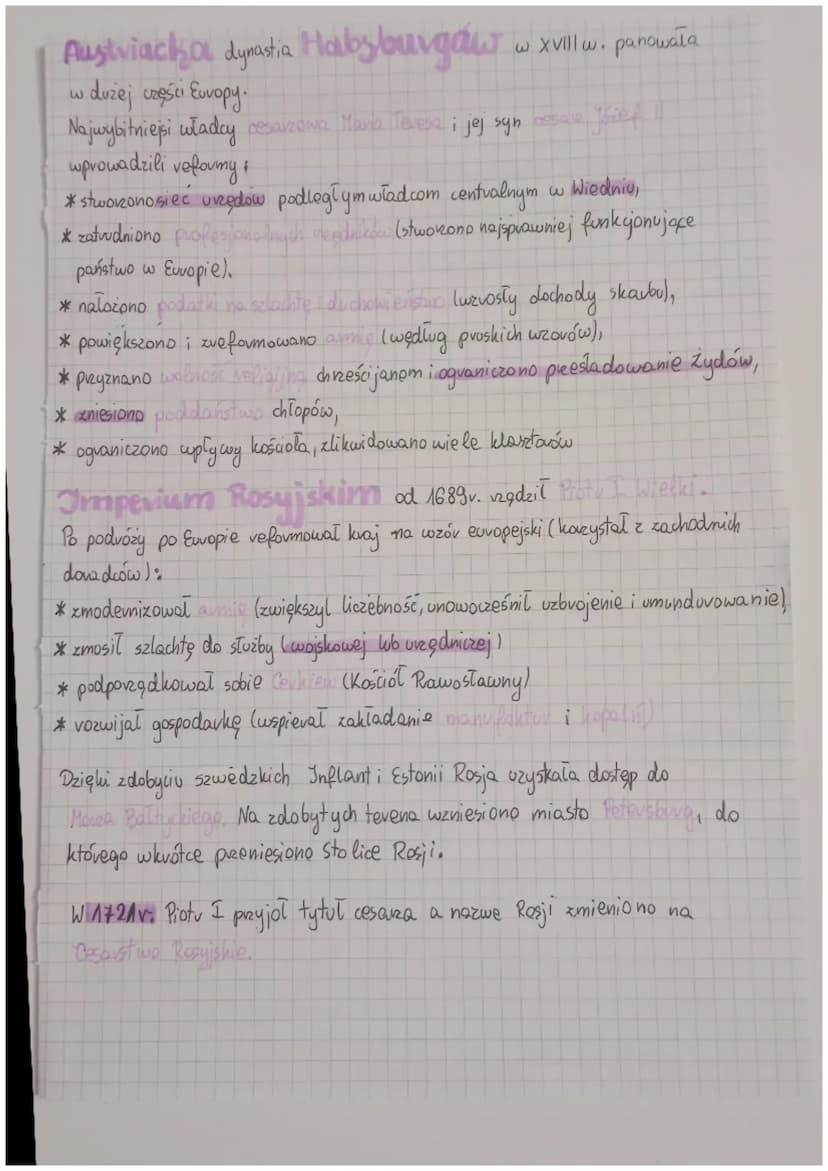 Austriacka dynastia Habsburgów w XVIII w. panowała
w dużej części Europy.
Najwybitniejsi władcy cesarzowa Maria Teresa i jej syn cesarz Józef II
wprowadzili reformy:
* stworzono sieć urzędów podległym władcom centralnym w Wiedniu,
* zatrudniono profesjonalnych urzędników (stworzono najsprawniej funkcjonujące
państwo w Europie).
* nałożono podatki na szlachtę i duchowieństwo (wzrosły dochody skarbu),
* powiększono i zreformowano armię (według pruskich wzorów),
* przyznano wolność religijną chrześcijanom i ograniczono prześladowanie Żydów,
* zniesiono poddaństwo chłopów,
* ograniczono wpływy kościoła, zlikwidowano wiele klasztorów
Imperium Rosyjskim od 1689r. rządził Piotr I Wielki.
Po podróży po Europie reformował kraj na wzór europejski (korzystał z zachodnich
doradców):
* zmodernizował armię (zwiększył liczebność, unowocześnił uzbrojenie i umundurowanie)
* zmosił szlachtę do służby (wojskowej lub urzędniczej)
* podporządkował sobie Cerkiew (Kościół Prawosławny)
* rozwijał gospodarkę (wspierał zakładanie manufaktur i kopalni)
Dzięki zdobyciu szwedzkich Inflant i Estonii Rosja uzyskała dostęp do
Morza Bałtyckiego. Na zdobytych terena wzniesiono miasto Petersburg, do
którego wkrótce przeniesiono stolice Rosji.
W 1721r. Piotr I przyjął tytuł cesarza a nazwe Rosji zmieniono na
Cesarstwo Rosyjskie.